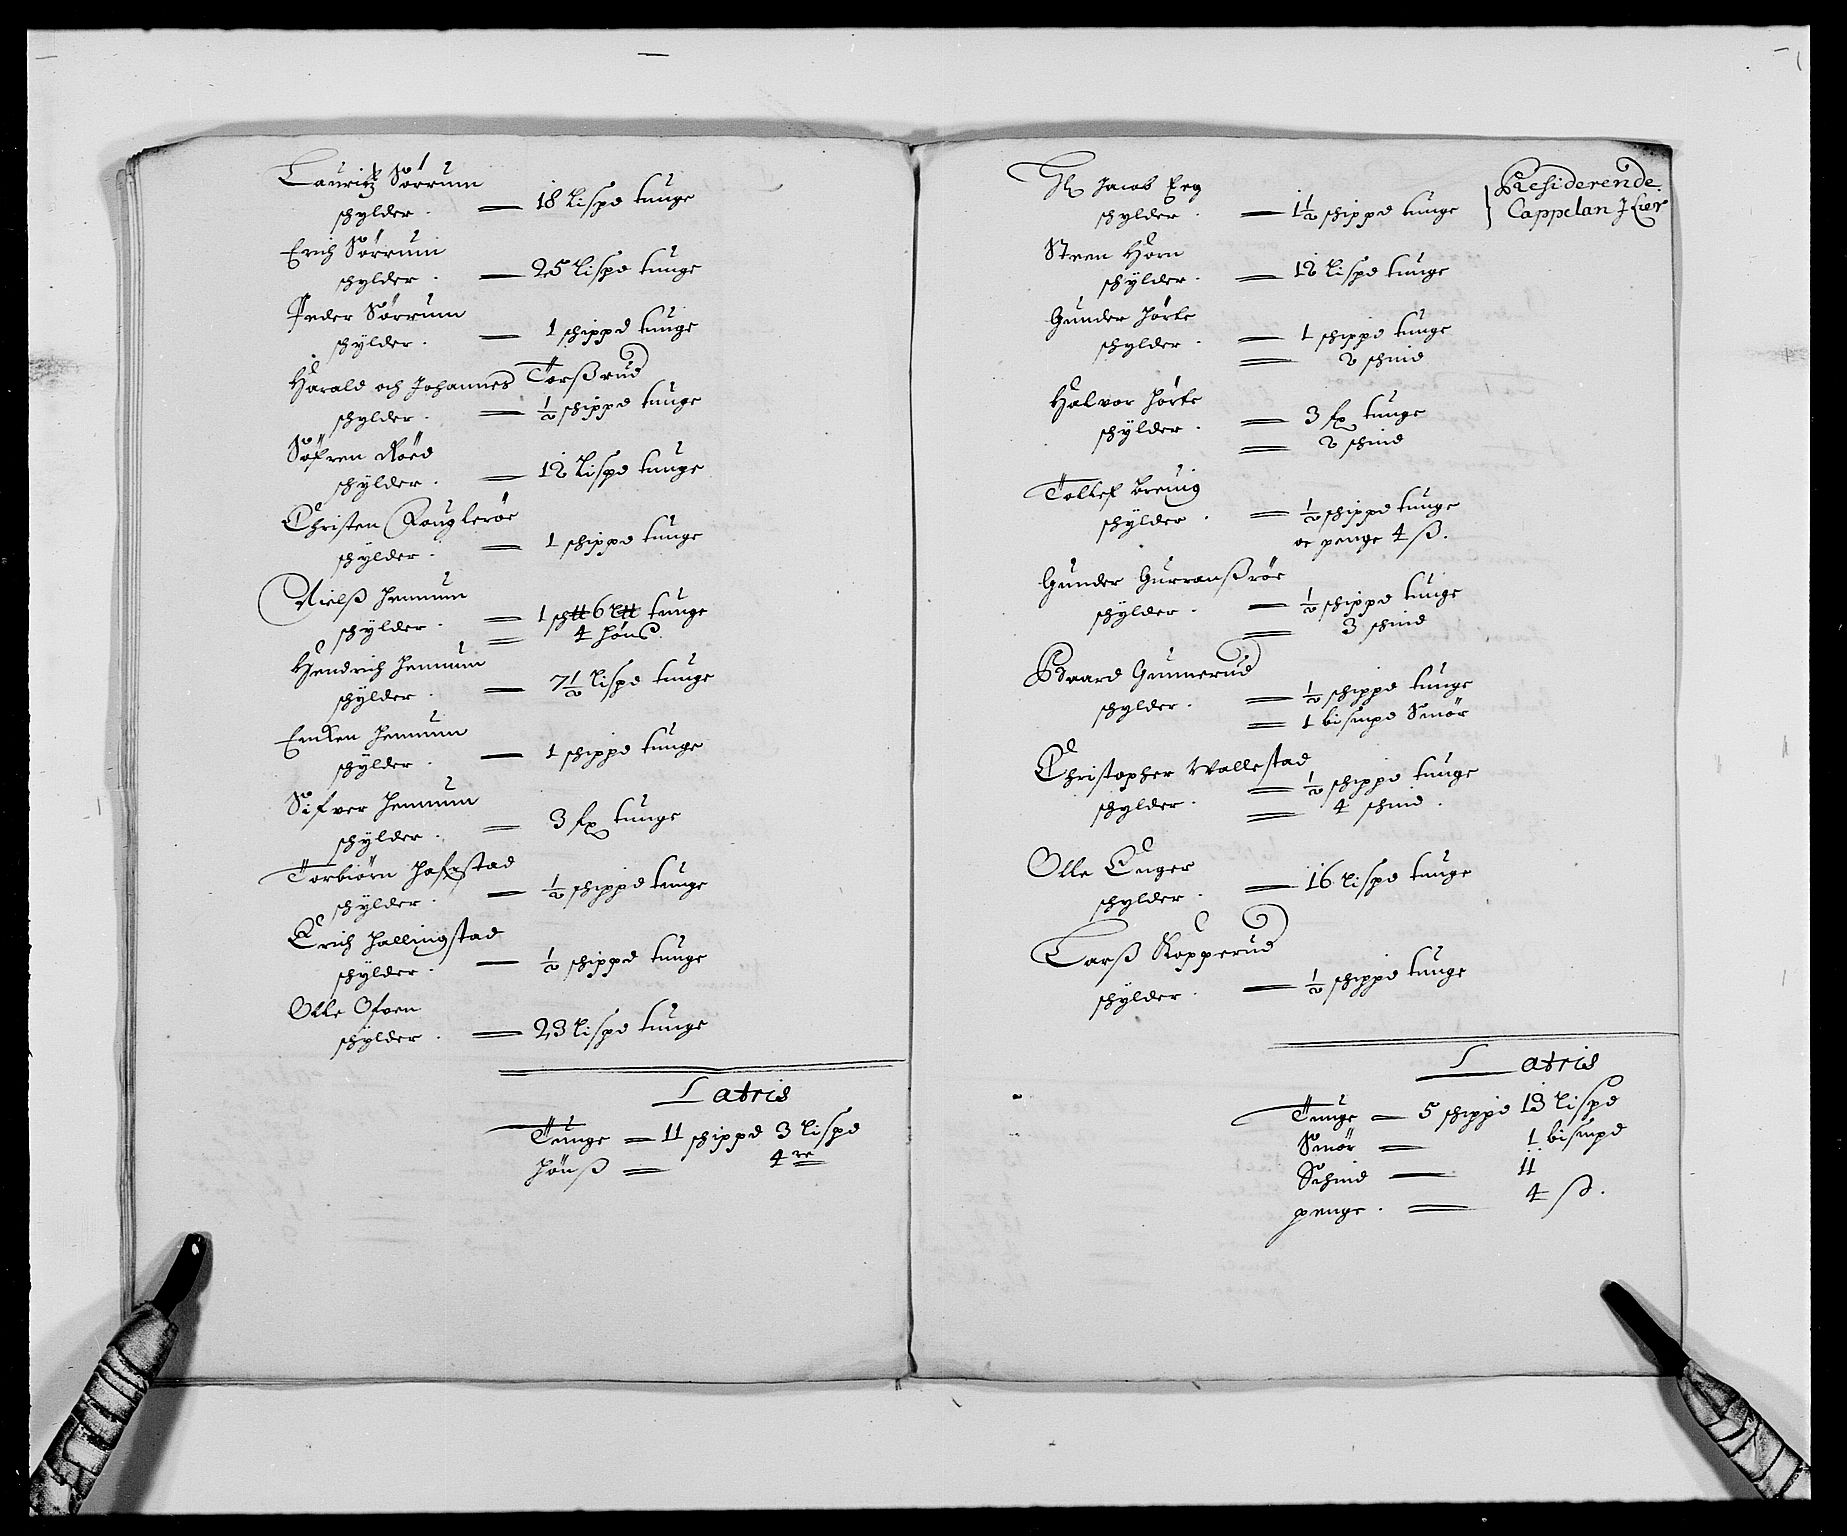 Lauritz Sörrum
schylder. — 18 Lispd tunge
Erich Sörrum
schylder. — 25 Lispd tunge
Peder Sörrum
schylder. — 1 schippd tunge
Harald och Johannes Torßrud
schylder. — ½ schippd tunge
Söfren Röed
schylder. — 12 Lispd tunge
Christen
schylder. — 1 schippd tunge
Nielß Hennum
schylder. — 1 sch℔ 6 L℔ tunge
4 höns.
Hendrich Hennum
schylder. — 7½ Lispd tunge
Hennum
schylder. — 1 schippd tunge
Sifver Hennum
schylder. — 3 fx tunge
Torbiörn Hafstad
schylder. — ½ schippd tunge
Erich Hallingstad
schylder. — ½ schippd tunge
Olle Ofven
schylder. — 23 Lispd tunge
Latris
Tunge — 11 schippd 3 Lispd
Hönß — 4 re
Hr Jacob Erg
schylder. — 1½ schippd tunge } Residerende
Cappelan J Lier
Steen Horn
schylder. — 12 Lispd tunge
Gunder Hörte
schylder. — 1 schippd tunge
2 schind
Halvor Hörte
schylder. — 3 fx tunge
2 schind
Tollef Breuig
schylder. — ½ schippd tunge
oc penge 4 ß.
Gunder Gurranßröe
schylder. — ½ schippd tunge
3 schind
Baard Gunnerud
schylder. — ½ schippd tunge
1 bismpd Smör
Christopher Wallestad
schylder. — ½ schippd tunge
4 schind.
Olle Enger
schylder. — 16 Lispd tunge
Larß Kopperud
schylder. — ½ schippd tunge
Latris
Tunge — 5 schippd 13 Lispd
Smör — 1 bismpd
Schind — 11
penge. — 4 ß.